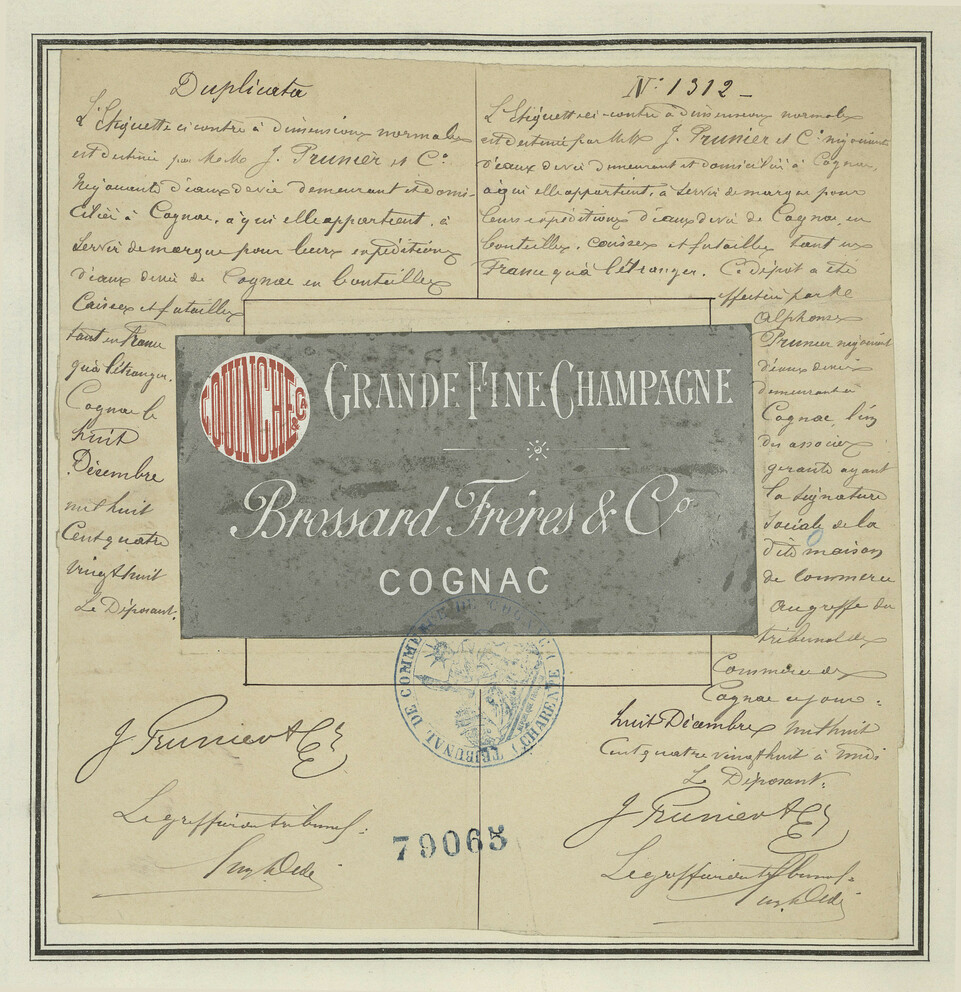 Duplicata
L'Etiquette ci contre à dimensions normales
est destinée par MM. J. Prunier et Cⁱᵉ
Négociants d'eaux de vie demeurant et domi-
ciliés à Cognac, à qui elle appartient, à
servir de marque pour leurs expéditions
d'eaux de vie de Cognac en bouteilles
Caisses et futailles
tant en France
qu'à l'étranger.
Cognac le
huit
Décembre
mil huit
Cent quatre
vingt huit
Le Déposant.
J Prunier & Cⁱᵉ
Le greffier du tribunal:
N° 1312 -
L'Etiquette ci-contre à dimensions normales
est destinée par MM. J. Prunier et Cⁱᵉ négociants
d'eaux de vie demeurant et domiciliés à Cognac,
à qui elle appartient, à servir de marque pour
leurs expéditions d'eaux de vie de Cognac en
bouteilles, caisses et futailles tant en
France qu'à l'étranger. Ce dépôt a été
effectué par M.
Alphonse
Prunier négociant
d'eaux de vie
demeurant à
Cognac, l'un
des associés
gérants ayant
la signature
sociale de la
dite maison
de commerce
au greffe du
tribunal de
Commerce de
Cognac ce jour:
huit Décembre mil huit
Cent quatre vingt huit à midi
Le Déposant:
J Prunier & Cⁱᵉ
Le greffier du tribunal:
COUINCHE & Cº
GRANDE FINE CHAMPAGNE
Brossard Frères & Cº
COGNAC
TRIBUNAL DE COMMERCE DE COGNAC (CHARENTE)
79065